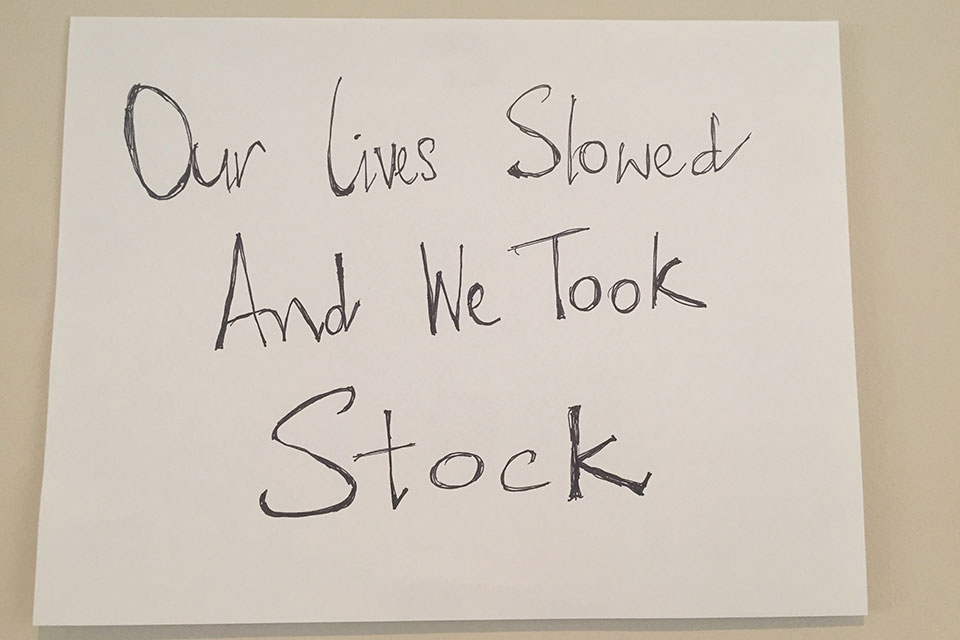 Our Lives Slowed
And We Took
Stock